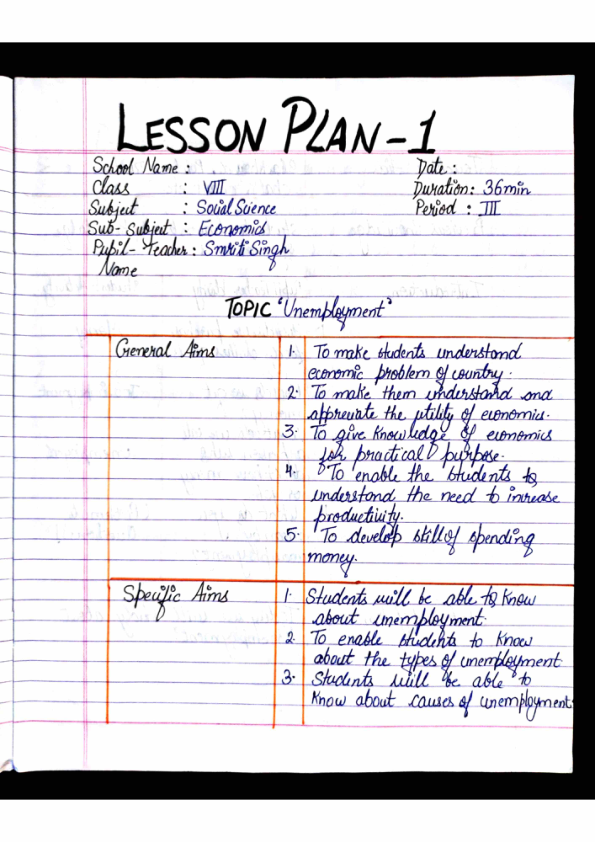 LESSON PLAN-1
School Name :
Date :
Class : VIII
Duration: 36min
Subject : Social Science
Period : III
Sub-Subject : Economics
Pupil-Teacher : Smriti Singh
Name
TOPIC 'Unemployment'
General Aims
1. To make students understand
economic problem of country.
2. To make them understand and
appreciate the utility of economics.
3. To give knowledge of economics
for practical purpose.
4. To enable the students to
understand the need to increase
productivity.
5. To develop skill of spending
money.
Specific Aims
1. Students will be able to know
about unemployment.
2. To enable students to know
about the types of unemployment
3. Students will be able to
know about causes of unemployment.